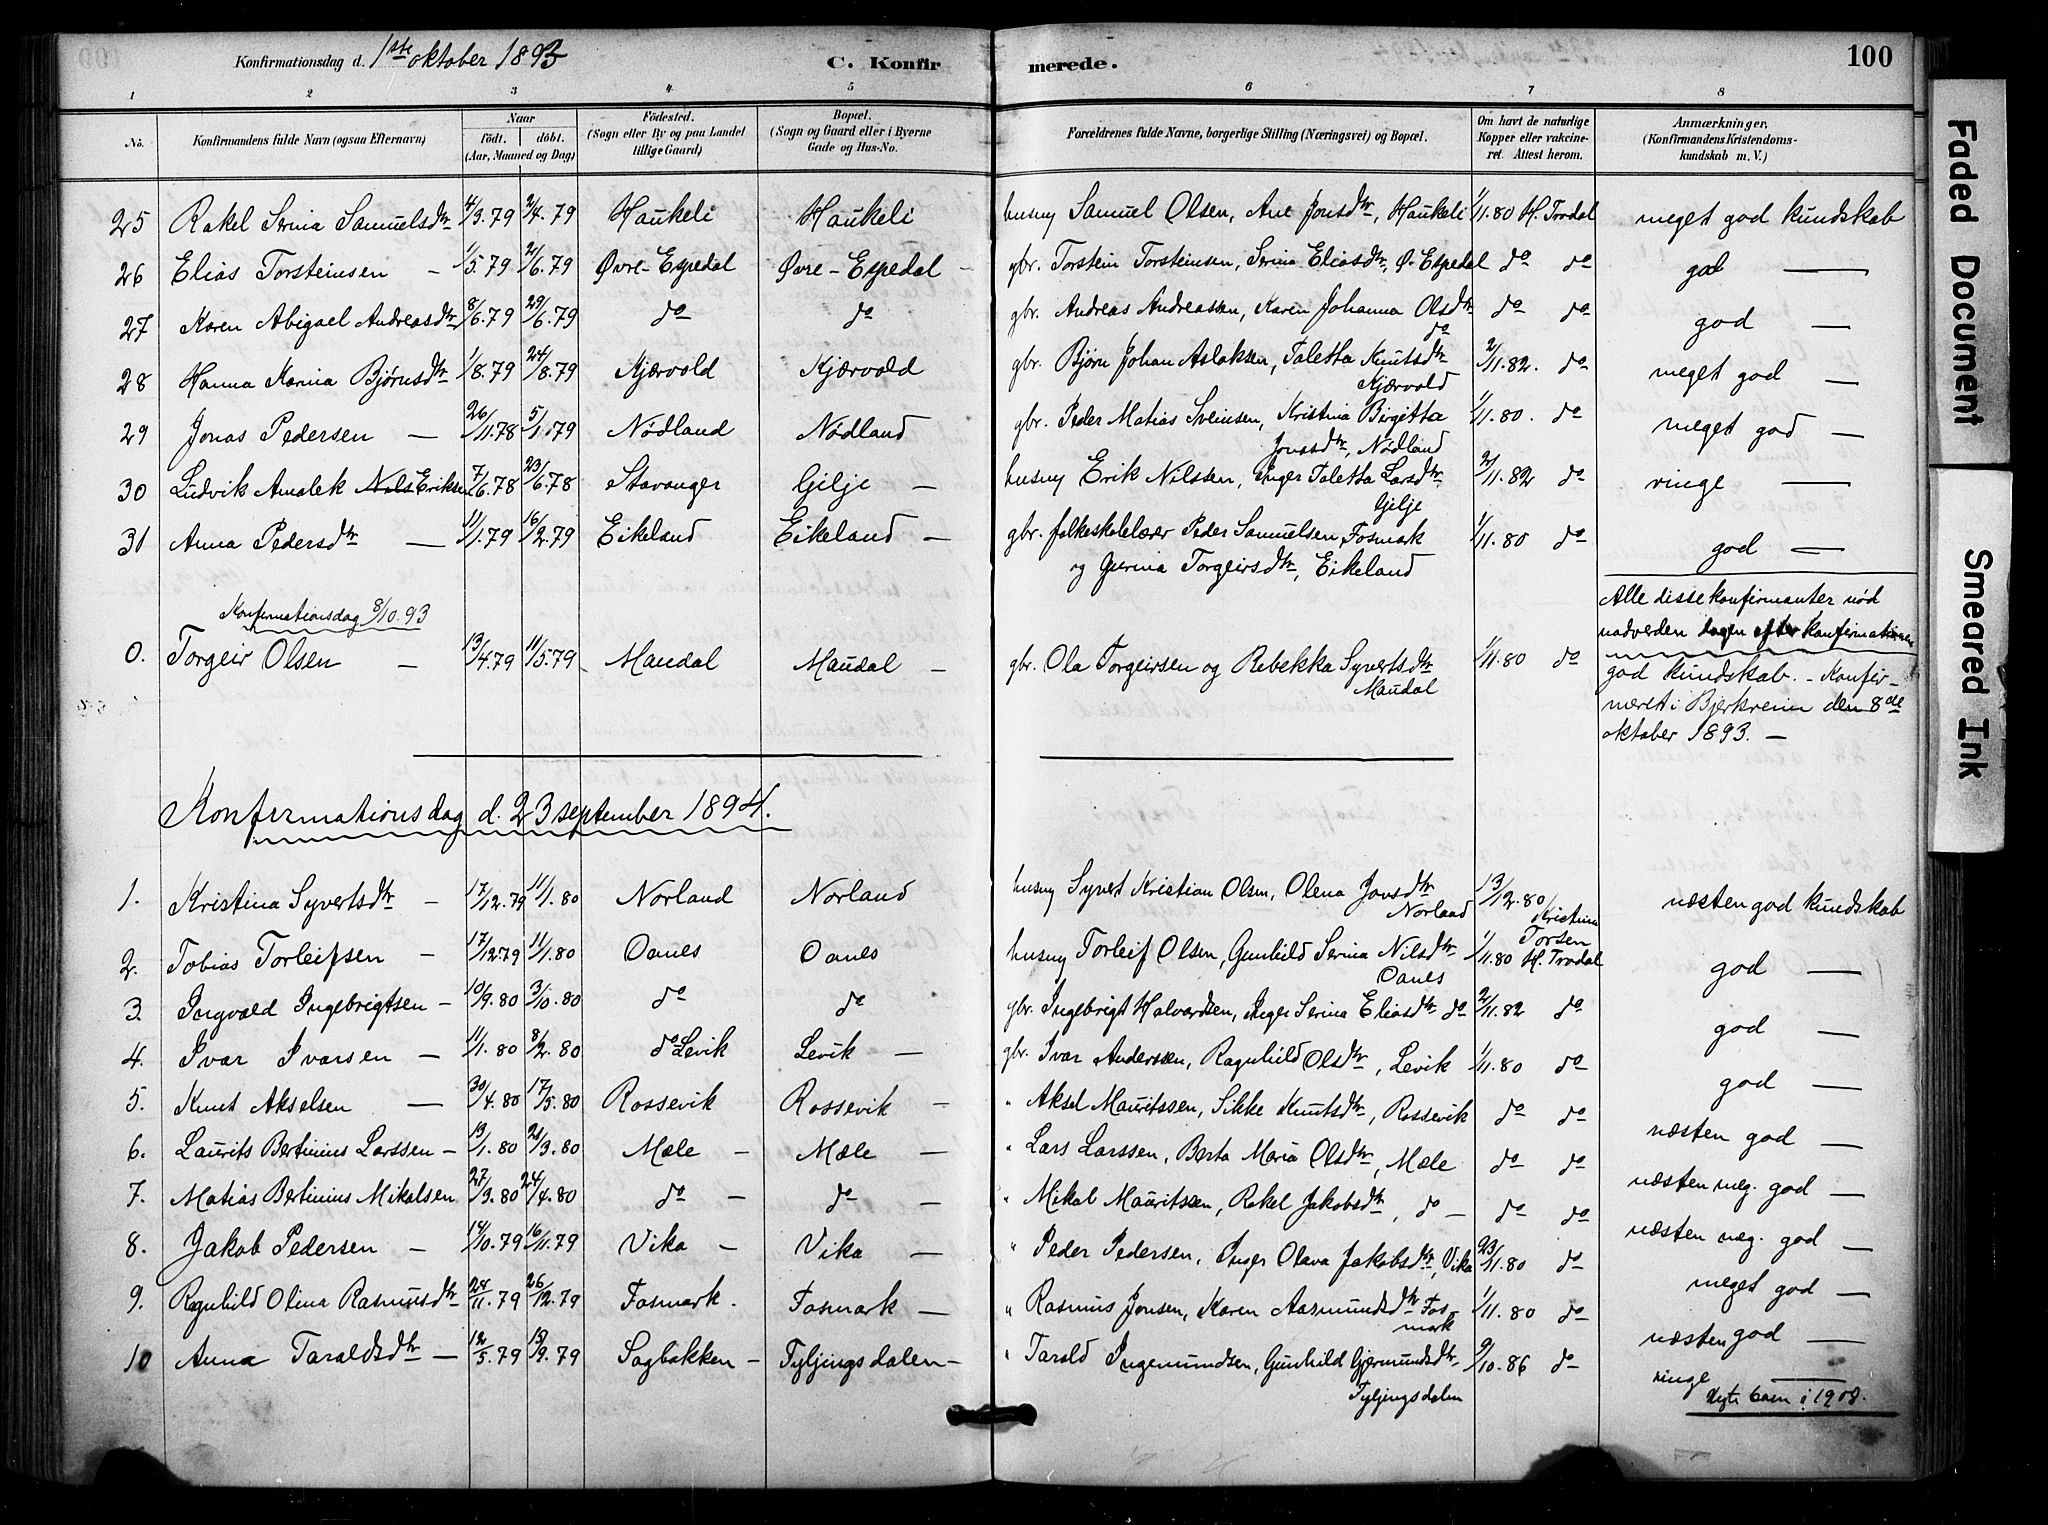 Konfirmationsdag d. 1ste oktober 1893
C. Konfirmerede.
100
1 2 3 4 5 6 7 8
No.
Konfirmandens fulde Navn (ogsaa Efternavn)
Naar
födt. döbt.
(Aar, Maaned og Dag)
Födested.
(Sogn eller By og paa Landet
tillige Gaard)
Bopæl.
(Sogn og Gaard eller i Byerne
Gade og Hus-No.
Forældrenes fulde Navne, borgerlige Stilling (Næringsvei) og Bopæl.
Om havt de naturlige
Kopper eller vakcine-
ret. Attest herom.
Anmærkninger,
(Konfirmandens Kristendoms-
kundskab m. V.)
25 Rakel Serina Samuelsdtr 4/3.79 2/4.79 Haukeli Haukeli husmg Samuel Olsen, Ane Jonsdtr, Haukeli 1/11.80 H. Trodal meget god kundskab
26 Elias Torsteinsen — 1/5.79 2/6.79 Øvre-Espedal Øvre-Espedal — gbr. Torstein Torsteinsen, Serina Eliasdtr, Ø. Espedal do do god —
27 Karen Abigael Andreasdtr 8/6.79 29/6.79 do do gbr. Andreas Andreassen, Karen Johanna Olsdtr do do god —
do
28 Hanna Karina Bjørnsdtr 1/8.79 24/8.79 Kjærvold Kjærvold gbr. Bjørn Johan Aslaksen, Taletta Knutsdtr 2/11.82. do meget god —
Kjærvold
29 Jonas Pedersen — 26/11.78 5/1.79 Nödland Nödland gbr. Peder Matias Sveinsen, Kristina Birgitta 1/11.80. do meget god —
Jonasdtr, Nödland
30 Ludvik Amalek Nils Eriksen 7/6.78 23/6.78 Stavanger Gilje — husmg Erik Nilssen, Inger Taletta Larsdtr 2/11.82 do ringe —
Gilje
31 Anna Pedersdtr — 11/1.79 16/2.79 Eikeland Eikeland — gbr. folkeskolelærer Peder Samuelsen, Fosmark 1/11.80 do god —
og Gurina Torgeirsdtr, Eikeland
Alle disse konfirmanter nöd
nadverden dagen efter konfirmationen
Konfirmationsdag 8/10.93
0. Torgeir Olsen — 13/4.79 11/5.79 Maudal Maudal — gbr. Ola Torgeirsen og Rebekka Syvertsdtr 1/11.80 do god kundskab. - Konfir-
Maudal
meret i Bjerkreim den 8de
oktober 1893. —
Konfirmationsdag d. 23 september 1894.
1. Kristina Syvertsdtr — 17/12.79 11/1.80 Norland Norland husmg Syvert Kristian Olsen, Olena Jonsdtr 13/12.80 næsten god kundskab
Norland Kristina
Torsen
2. Tobias Torleifsen — 17/12.79 11/1.80 Oanes Oanes husmg Torleif Olsen, Gunhild Serina Nilsdtr 1/11.80 H. Trodal god —
Oanes
3. Ingvald Ingebrigtsen — 10/9.80 3/10.80 do do gbr. Ingebrigt Halvardsen, Inger Serina Eliasdtr do 2/11.82 do god —
4. Ivar Ivarsen — 11/1.80 8/2.80 do Levik Levik — gbr. Ivar Anderssen, Ragnhild Olsdtr, Levik 1/11.80 do god —
5. Knut Akselsen — 30/4.80 17/5.80 Rossevik Rossevik — " Aksel Mauritssen, Sikke Knutsdtr, Rossevik do do næsten god —
6. Laurits Bertinius Larssen — 13/1.80 21/3.80 Mæle — Mæle — " Lars Larssen, Berta Maria Olsdtr, Mæle do do næsten meg. god —
7. Matias Bertinius Mikalsen 27/3.80 24/4.80 do — do — " Mikal Mauritssen, Rakel Jakobsdtr, do — do do næsten meg. god —
8. Jakob Pedersen — 14/10.79 16/11.79 Vika — Vika — " Peder Pedersen, Inger Olava Jakobsdtr, Vika 23/11.80 do meget god —
9. Ragnhild Olina Rasmusdtr 24/11.79 26/12.79 Fosmark. Fosmark — " Rasmus Jonsen, Karen Aasmundsdtr Fos- 1/11.80 do næsten god —
mark
10 Anna Taraldsdtr — 12/5.79 13/9.79 Sagbakken — Tyljingsdalen — " Tarald Ingemundsen, Gunhild Gjermundsdtr 9/10.86 do ringe —
Tyljingsdalen
i 1908.
Faded Document
Smeared Ink